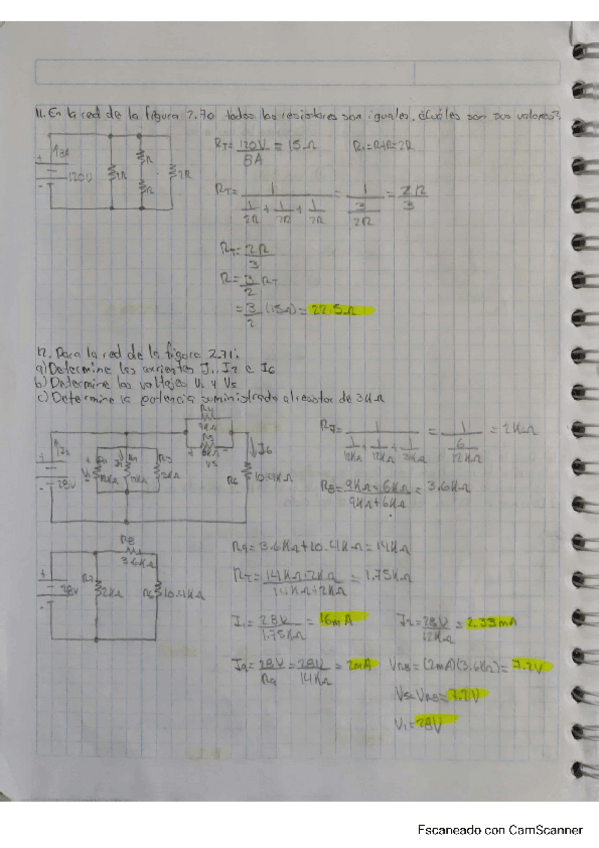 11. En la red de la figura 2.70 todos los resistores son iguales. ¿Cuáles son sus valores?
RT = 120V / 8A = 15Ω
R1 = R+R = 2R
120V
R
R
2R
RT = 1 / (1/2R + 1/2R + 1/2R) = 1 / (3/2R) = 2R/3
RT = 2R/3
R = 3/2 RT
= 3/2 (15Ω) = 22.5Ω
12. Para la red de la figura 2.71:
a) Determine las corrientes I1, I2 e I6
b) Determine los voltajes V1 y V5
c) Determine la potencia suministrada al resistor de 3KΩ
R4
9KΩ
R5
V5
I6
R6
10.4KΩ
28V
R7 = 1 / (1/12KΩ + 1/12KΩ + 1/3KΩ) = 1 / (6/12KΩ) = 2KΩ
R8 = 9KΩ · 6KΩ / 9KΩ + 6KΩ = 3.6KΩ
R8
3.6KΩ
28V
R7
2KΩ
R6
10.4KΩ
R9 = 3.6KΩ + 10.4KΩ = 14KΩ
RT = 14KΩ · 2KΩ / 14KΩ + 2KΩ = 1.75KΩ
I1 = 28V / 1.75KΩ = 16mA
I2 = 28V / 12KΩ = 2.33mA
I9 = 28V / R9 = 28V / 14KΩ = 2mA
VR8 = (2mA)(3.6KΩ) = 7.2V
V5 = VR8 = 7.2V
V1 = 28V
Escaneado con CamScanner